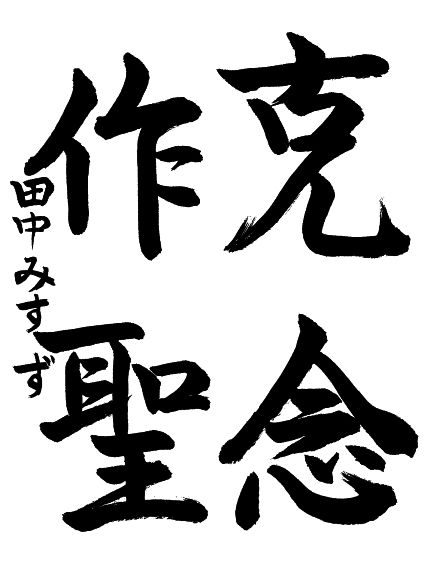 克念
作聖
田中みすず